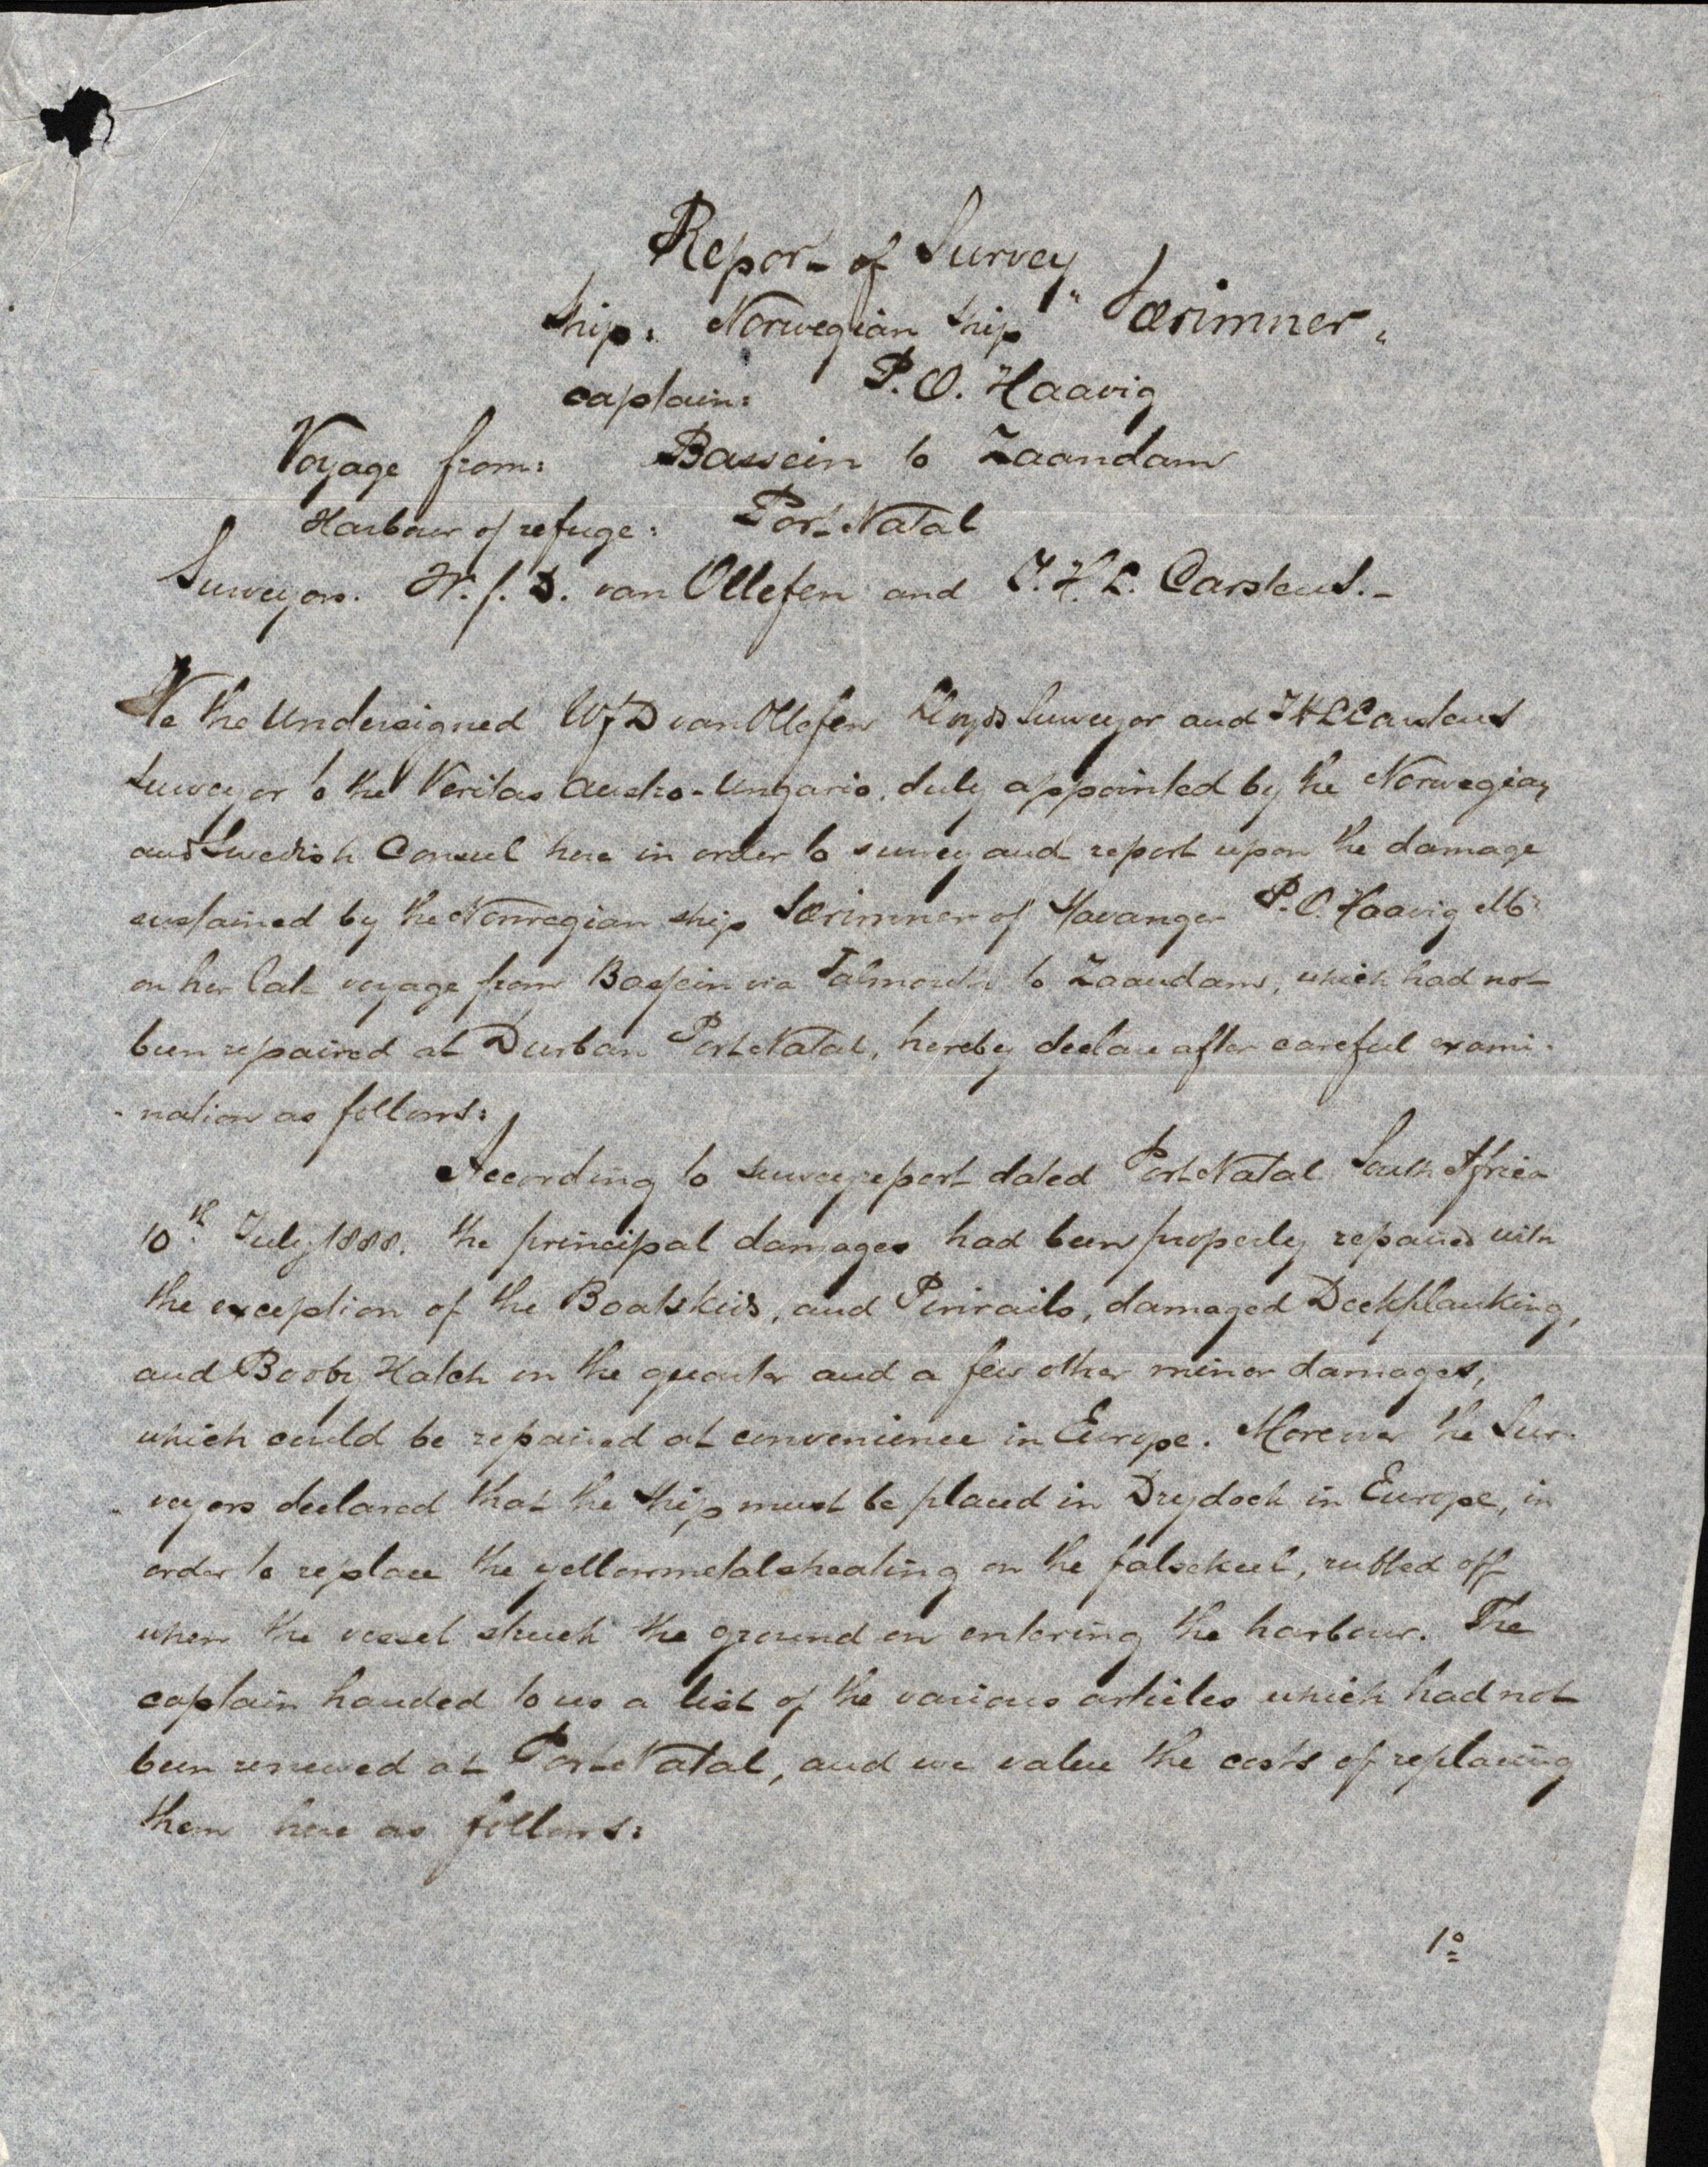 Report of Survey
Ship: Norwegian Ship "Særimner"
captain: P. O. Haavig
Voyage from: Bassein to Zaandam
Harbour of refuge: Port Natal
Surveyors. W. J. D. van Ollefen and J. H. L. Carstens.-
We the Undersigned W J D van Ollefen Lloyds Surveyor and J H L Carstens
Surveyor to the Veritas Austro-Ungario, duly appointed by the Norwegian
and Swedish Consul here in order to survey and report upon the damage
sustained by the Norwegian ship Særimner of Stavanger P. O. Haavig Mr
on her late voyage from Bassein via Falmouth to Zaandam, which had not
been repaired at Durban Port Natal, hereby declare after careful exami-
-nation as follows:
According to surveyreport dated Port Natal South Africa
10th July 1888. the principal damages had been properly repaired with
the exception of the Boatskids, and Pinrails, damaged Deckplanking,
and Booby Hatch on the quarter and a few other minor damages,
which could be repaired at convenience in Europe. Morover the Sur-
-veyors declared that the ship must be placed in Drydock in Europe, in
order to replace the yellowmetalsheating on the falsekeel, rubbed off
when the vessel struck the ground on entering the harbour. The
captain handed to us a list of the various articles which had not
been renewed at Port Natal, and we value the costs of replacing
them here as follows:
1o